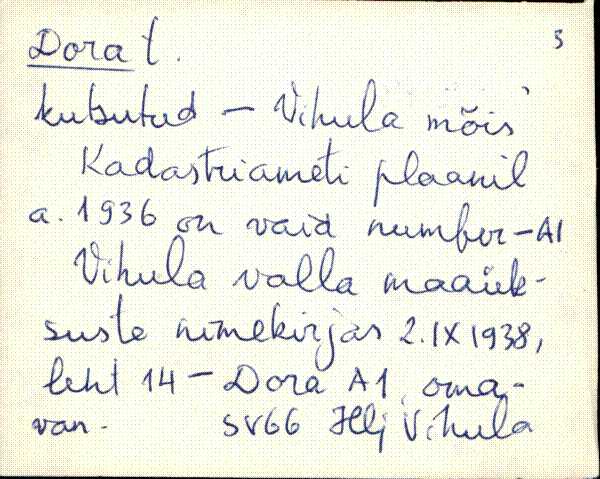 Dora t. 3
kutsutud – Vihula mõis
Kadastriameti plaanil
a. 1936 on vaid number – A1
Vihula valla maaük-
suste nimekirjas 2.IX 1938,
leht 14 – Dora A1, oma-
van. SV66 Hlj Vihula